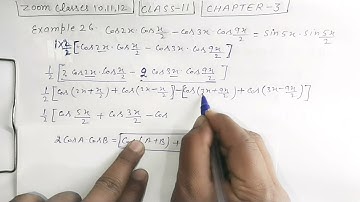 Zoom Classes 10,11,12 CLASS-11 CHAPTER-3
Example 26. Cos2x.cos x/2 - cos3x.cos 9x/2 = sin5x.sin 5x/2
1×2/2 [cos2x.cos x/2 - cos3x.cos 9x/2]
1/2 [2 cos2x.cos x/2 - 2 cos3x.cos 9x/2]
1/2 [cos(2x+x/2) + cos(2x-x/2)] - [cos(3x+9x/2) + cos(3x-9x/2)]
1/2 [cos 5x/2 + cos 3x/2 - cos
2 cosA.cosB = [cos(A+B) +